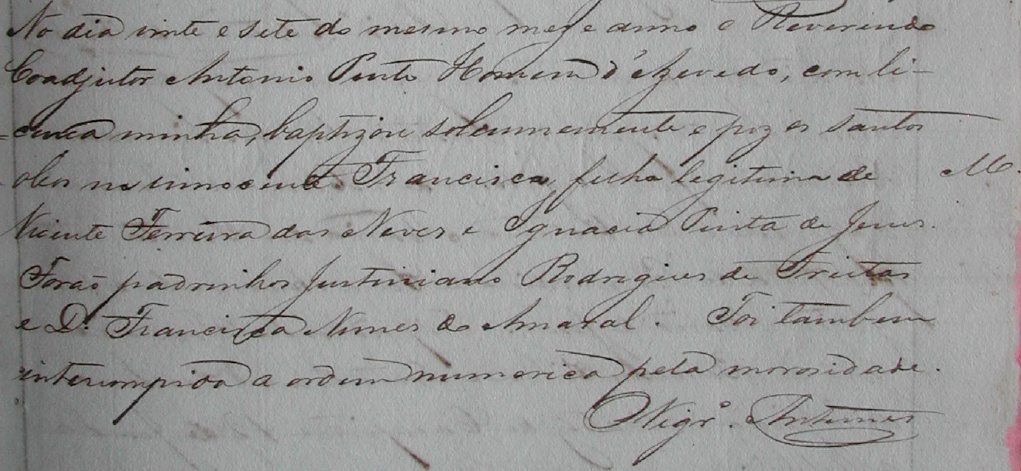 No dia vinte e sete do mesmo mez e anno o Reverendo
Coadjutor Antonio Pinto Homem d'Azevedo, com li-
cença minha, baptizou solemnemente e poz os santos
oleos na innocente Francisca, filha legitima de M.
Vicente Ferreira das Neves e Ignacia Pinta de Jesus.
Forão padrinhos Justiniano Rodrigues de Freitas
e D. Francisca Nunes do Amaral. Foi tambem
interrompida a ordem numerica pela morosidade.
Vigrº. Antunes